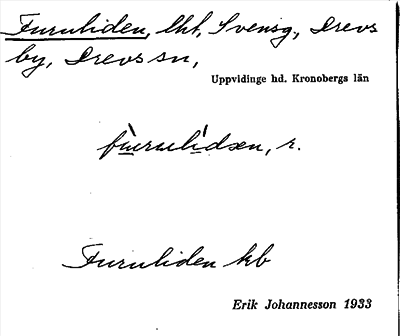 Furuliden, lht, Svensg, Drevs
by, Drevs sn,
Uppvidinge hd. Kronobergs län
fùrulídæn, r.
Furuliden kb
Erik Johannesson 1933